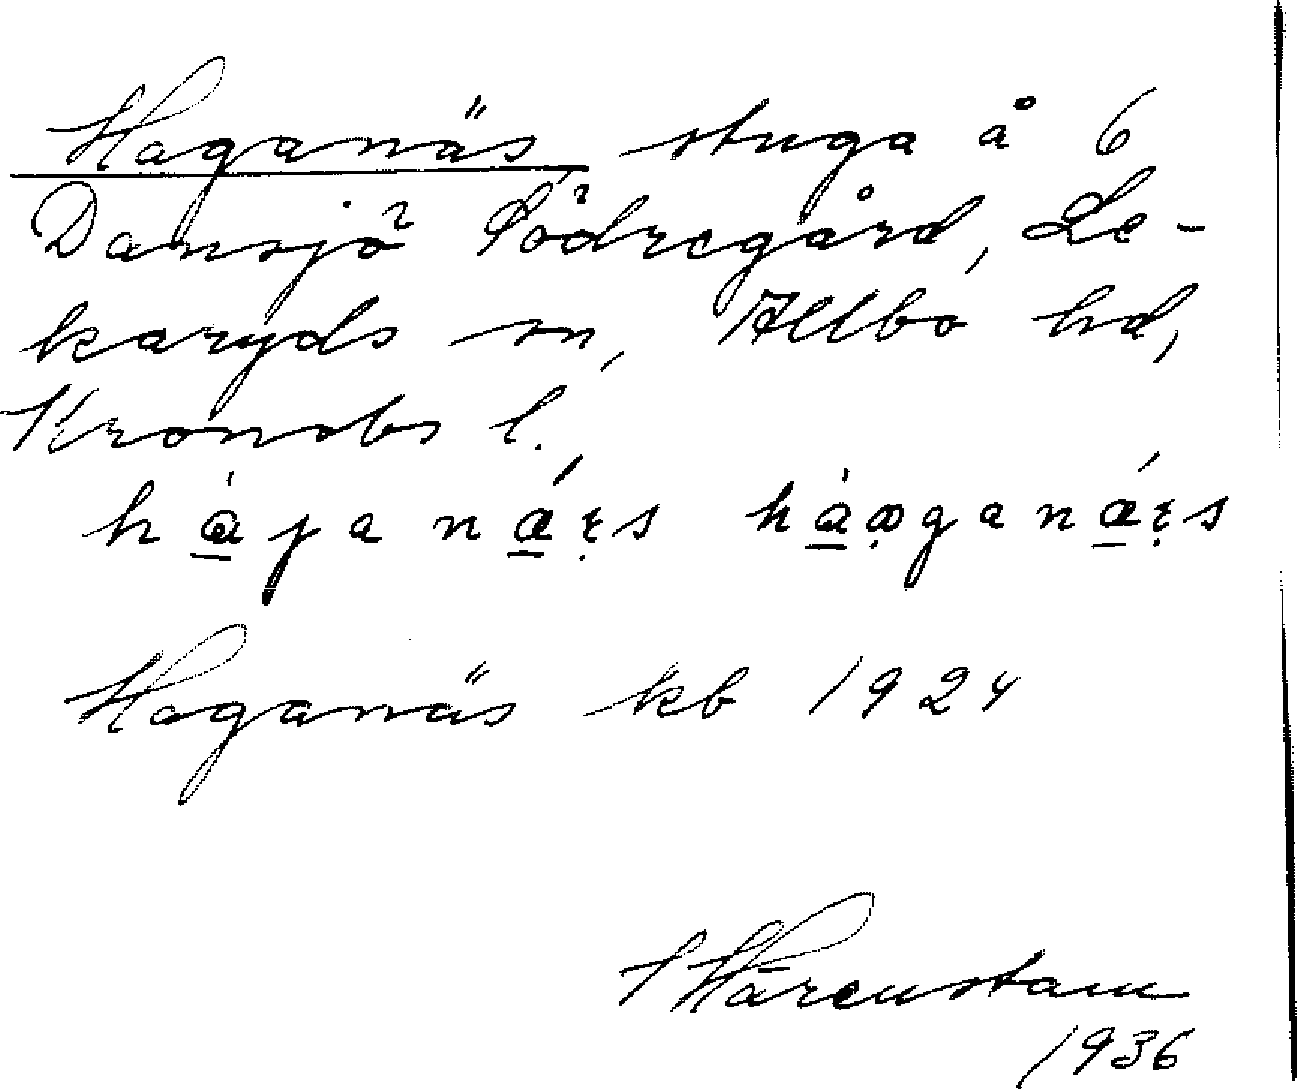 Haganäs stuga å 6
Dansjö Södregård, Le-
karyds sn, Allbo hd,
Kronobs l.
Haganäs kb 1924
Härenstam
1936